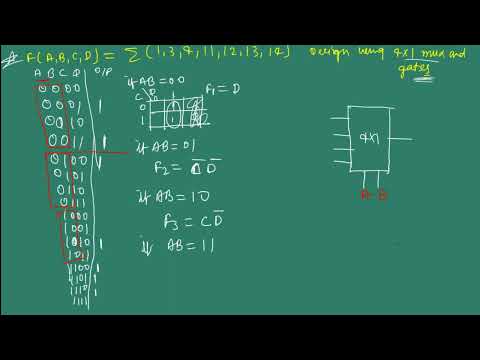 F(A,B,C,D) = Σ(1,3,4,11,12,13,14) Design using 4x1 mux and gates
A B C D O/P
0000
0001 1
0010
0011 1
0100 1
0101
0110
0111
1000
1001
1010 1
1011
1100 1
1101 1
1110 1
1111
if AB=00
C D 0 1
0
1
F1 = D
if AB=01
F2 = C̅ D̅
if AB=10
F3 = C D̅
if AB=11
4x1
A B